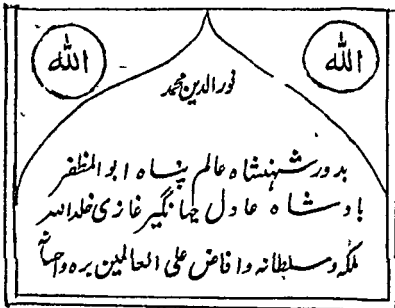 الله
الله
نورالدین محمد
بدور شہنشاہ عالم پناہ ابوالمظفر
بادشاہ عادل جہانگیر غازی خلد اللہ
ملکہ و سلطانہ و افاض علی العالمین برہ و احسانہ